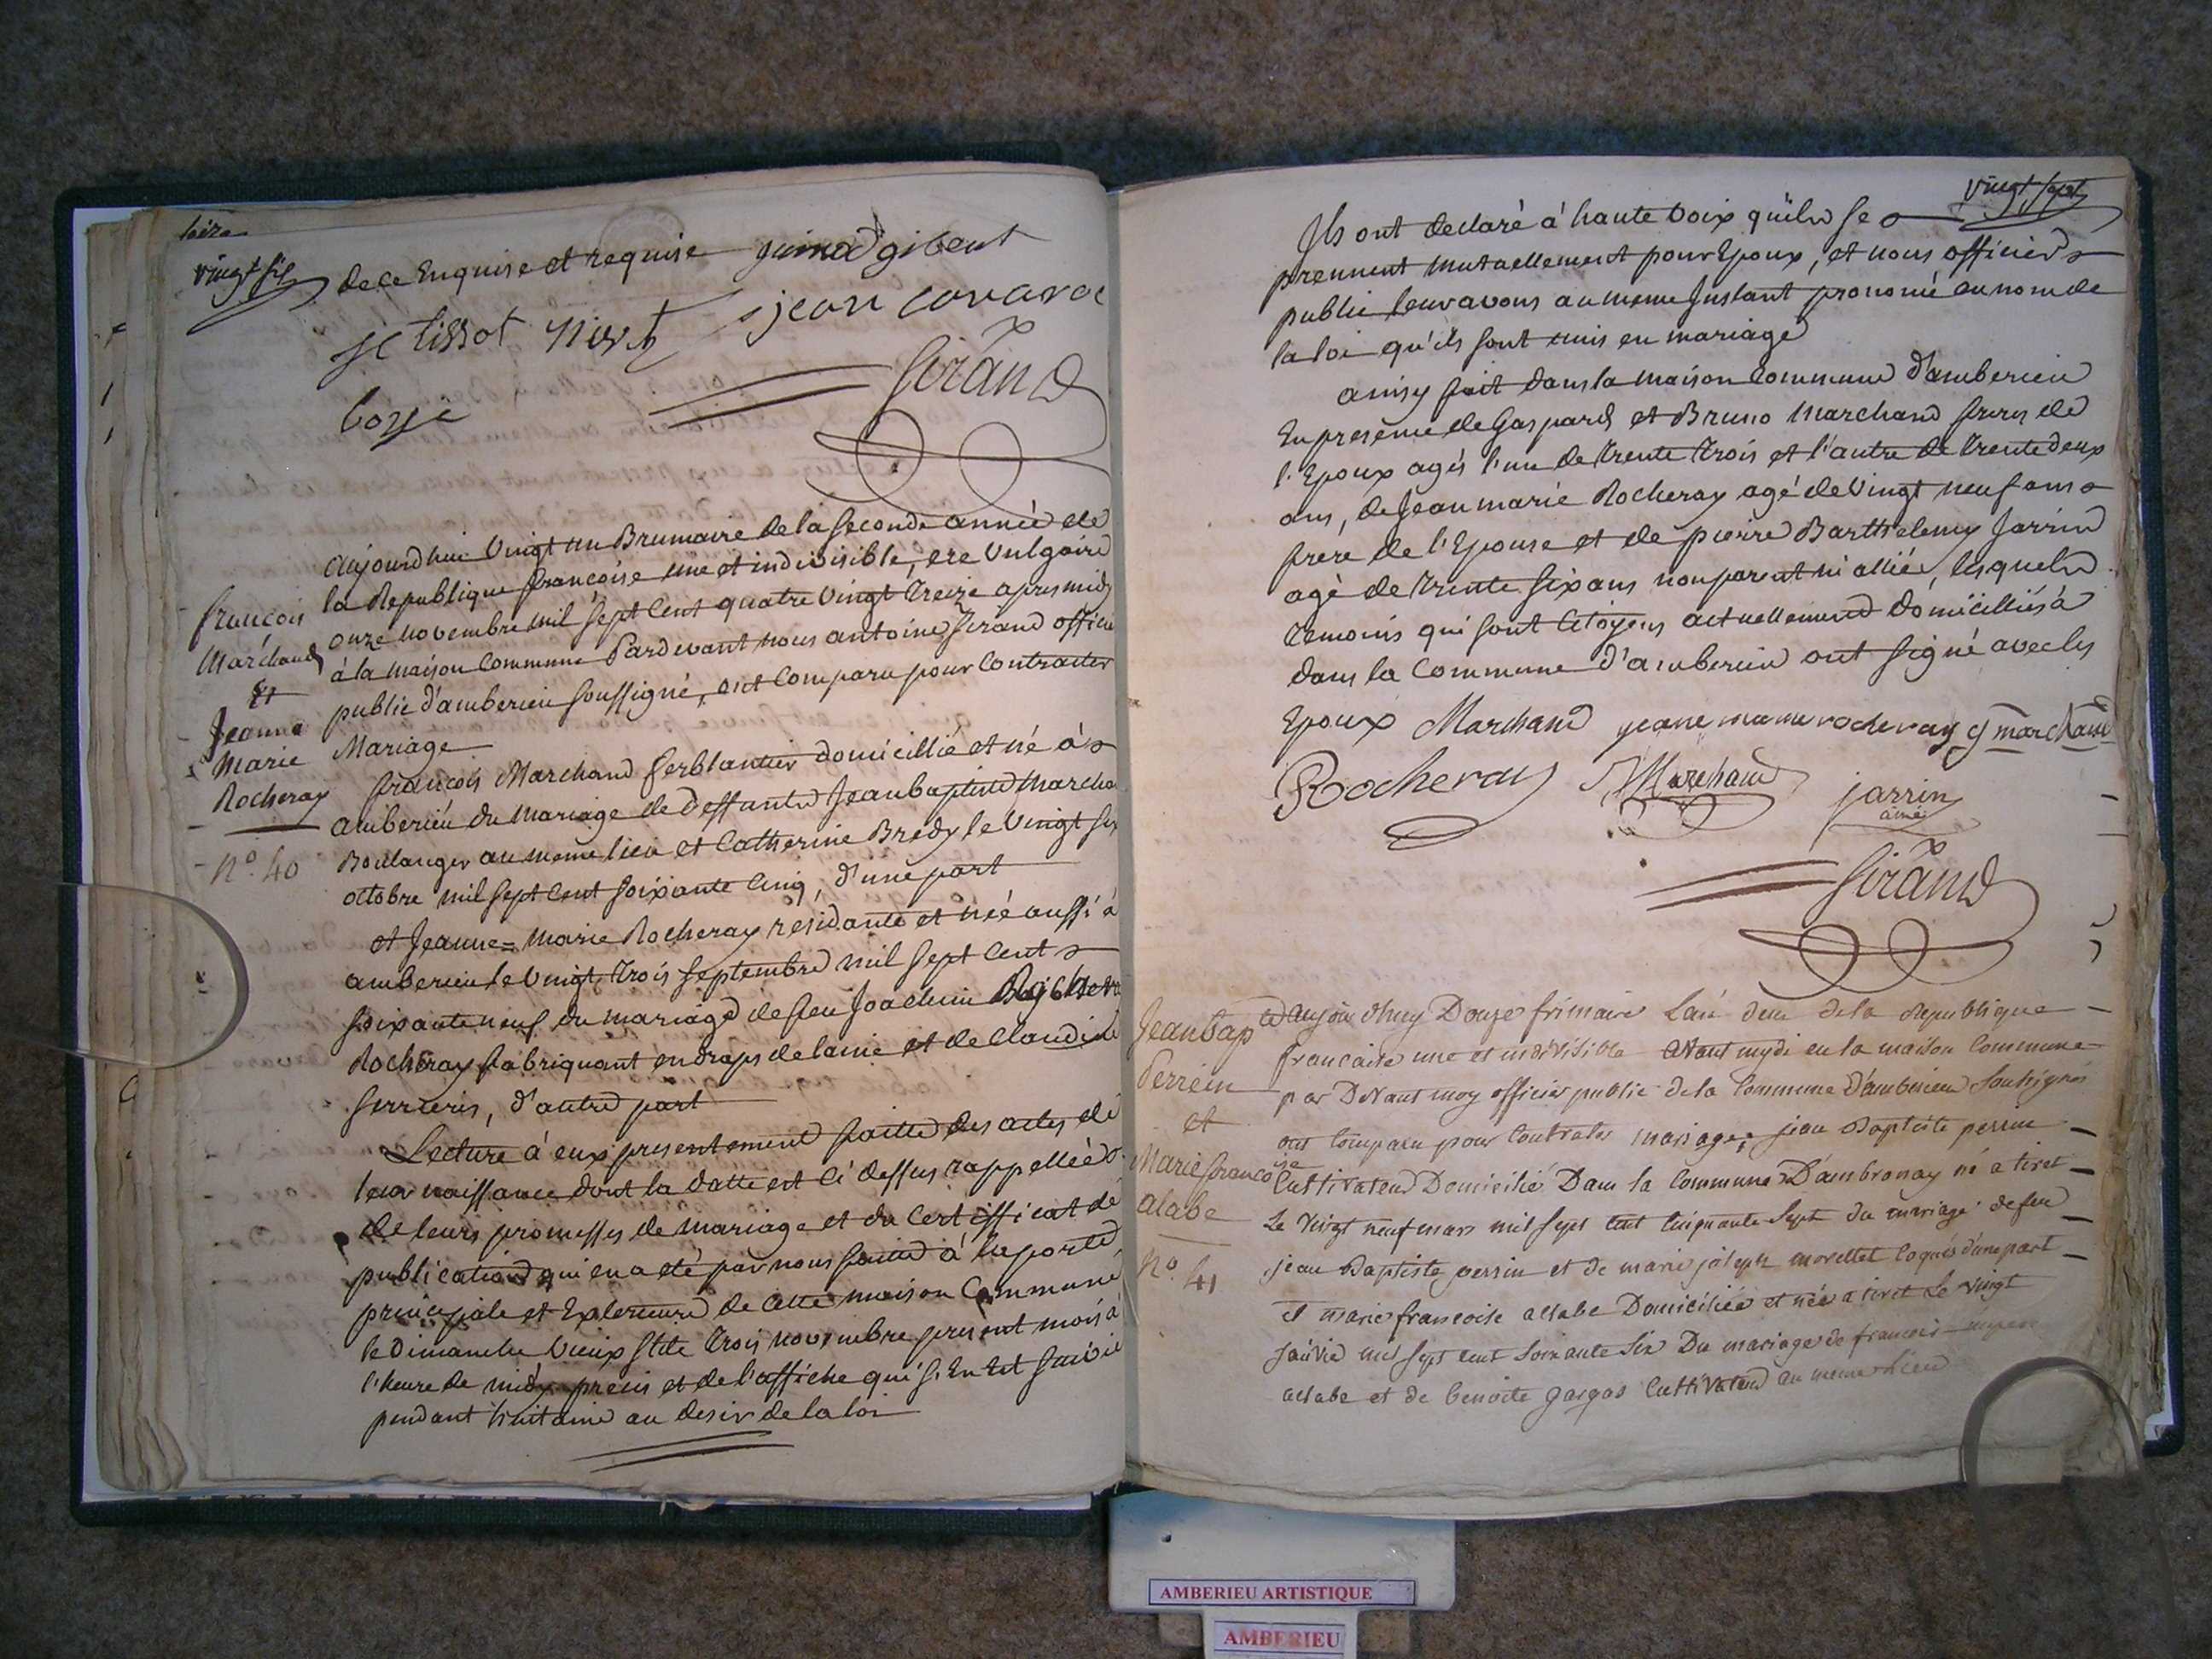 vingt six
de ce Enquise et requise
jc tissot niort
jean
Sirand
Aujourd'hui vingt un Brumaire de la seconde année de
la Republique françoise une et indivisible, ere vulgaire
onze novembre mil sept cent quatre vingt treize apres midy
à la maison commune Pardevant nous antoine Sirand officie
public d'amberieu soussigné, ont comparu pour contracter
Mariage
françois
Marchand
et
Jeanne
Marie
Rocheray
n.o 40
françois Marchand ferblantier domicillié et né à
amberieu du mariage de deffunts Jean baptiste Marcha
Boulanger au meme lieu et Catherine Bredy le vingt six
octobre mil sept cent soixante cinq, d'une part
et Jeanne=Marie Rocheray residante et née aussi à
amberieu le vingt trois septembre mil sept cent
soixante neuf du mariage de feu Joachim
Rocheray fabriquant en draps de laine et de Claudine
ferrieres, d'autre part
Lecture à eux presentement faitte des actes de
leur naissance dont la datte est ci dessus rappellée
de leurs promesses de mariage et du certifficat de
publication qui en a été par nous faitte à la porte
principale et Exterieure de cette maison Commune
le dimanche vieux stile trois novembre present mois à
l'heure de midy precis et de l'affiche qui s'en Est suivie
pendant huitaine au desir de la loi
vingt sept
Ils ont declaré à haute voix qu'ils se
prennent mutuellement pour Epoux, et nous officier
public leur avons au meme Instant prononcé au nom de
la loi qu'ils sont unis en mariage
ainsy fait dans la maison Commune d'amberieu
En presence de Gaspard et Bruno Marchand freres de
l'Epoux agés l'un de trente trois et l'autre de trente deux
ans, de Jean marie Rocheray agé de vingt neuf ans
frere de l'Epouse et de pierre Barthelemy Jarrin
agé de trente six ans non parent ni allié, lesquels
temoins qui sont Citoyens actuellement domicilliés
dans la Commune d'amberieu ont signé avec les
Epoux Marchand jeane marie rocheray g marchand
Rocheray Marchand jarrin
ainé
Sirand
Jean bap te
Perrein
et
Marie francoise
alabe
n.o 41
aujourdhuy Douze frimaire Lan deux dela Republique
francaise une et indivisible avant mydi en la maison Commune
par Devant moy officier public dela Commune d'amberieu Soussignés
ont Comparu pour Contrater mariage; jean Baptiste perrin
Cultivateur Domicilié Dans la Commune D'ambronay né a tiret
Le vingt neuf mars mil sept cent cinquante sept du mariage de feu
jean Baptiste perrin et de marie joseph morettet d'une part
et marie francoise allabe Domiciliée et née a tiret Le vingt
janvié mil sept cent soixante six Du mariage de francois
allabe et de benoite gargas Cultivateur au meme Lieu
AMBERIEU ARTISTIQUE
AMBERIEU